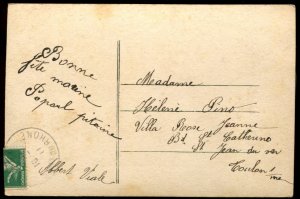 Bonne
fête marine
Popaul pitaine
Albert Viale
Madame
Hélène Pino
Villa Rose Jeanne
Bd Ste Catherine
St Jean du var
Toulon